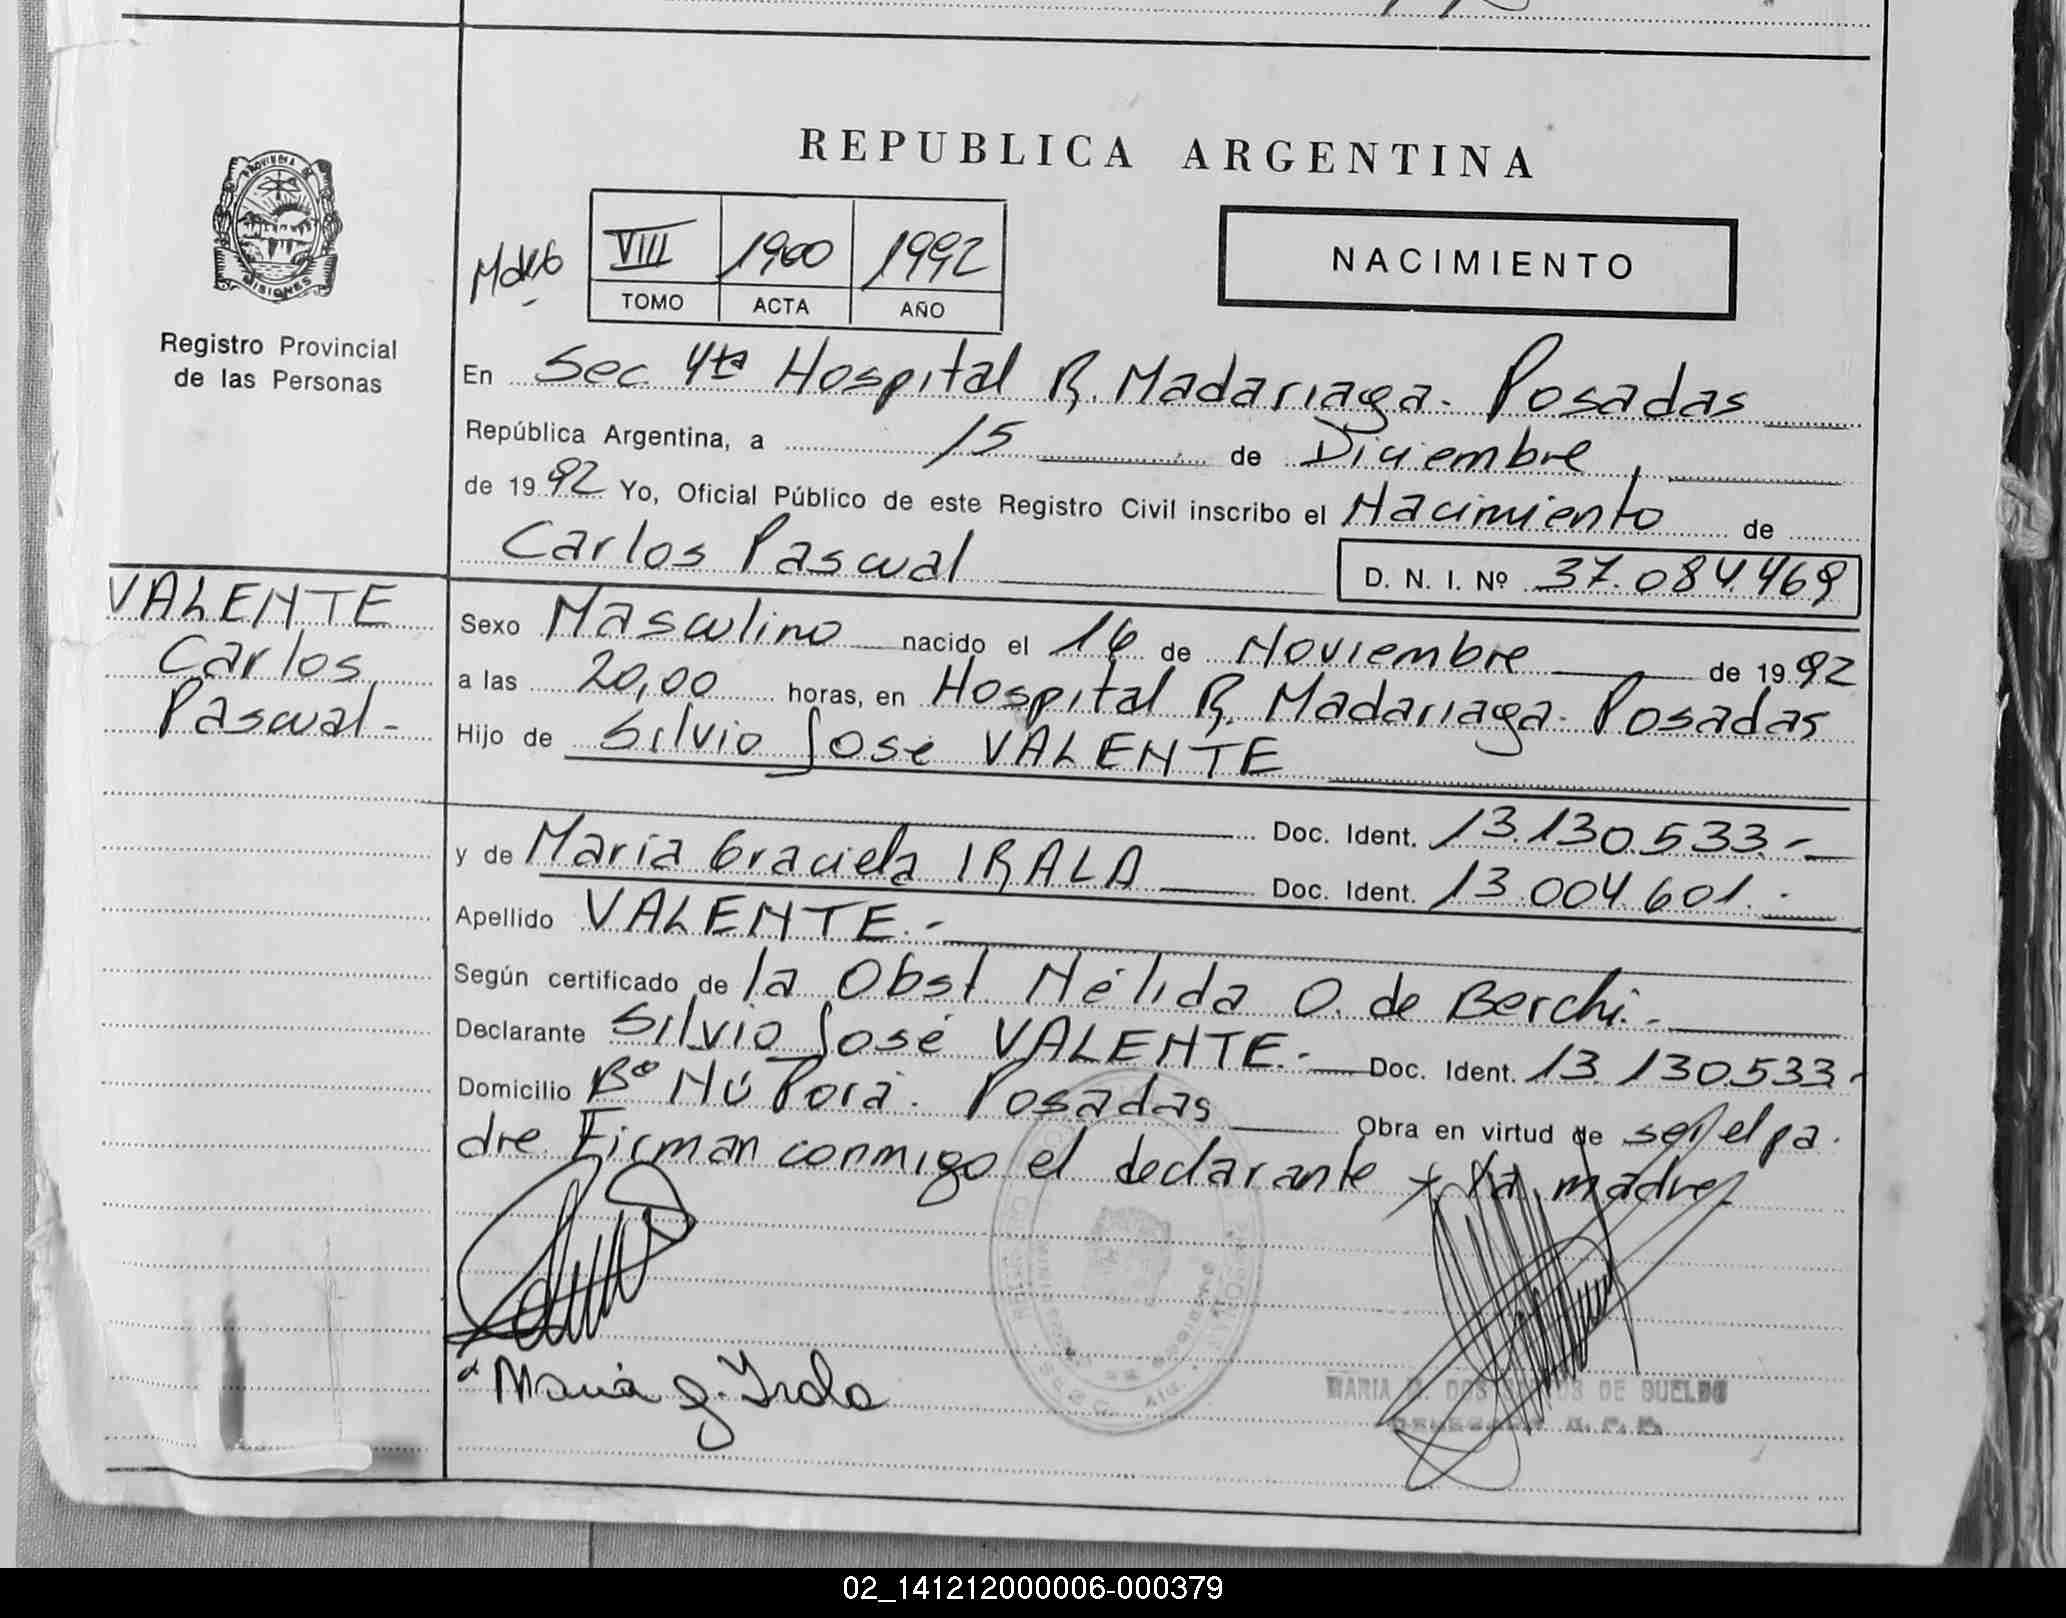 REPUBLICA ARGENTINA
PROVINCIA DE
MISIONES
Registro Provincial
de las Personas
VIII 1900 1992
TOMO ACTA AÑO
NACIMIENTO
En Sec 4ta Hospital R. Madariaga - Posadas
República Argentina, a 15 de Diciembre
de 1992 Yo, Oficial Público de este Registro Civil inscribo el Nacimiento de
Carlos Pascual D. N. I. Nº 37.084.469
VALENTE
Carlos
Pascual -
Sexo Masculino nacido el 16 de Noviembre de 1992
a las 20,00 horas, en Hospital R. Madariaga - Posadas
Hijo de Silvio José VALENTE
Doc. Ident. 13.130.533.-
y de María Graciela IRALA Doc. Ident. 13.004.601.-
Apellido VALENTE.-
Según certificado de la Obst. Nélida O. de Berchi.-
Declarante Silvio José VALENTE.- Doc. Ident. 13.130.533.-
Domicilio Bº Ñú Porá. Posadas Obra en virtud de ser el pa-
dre. Firman conmigo el declarante y la madre
María G. Irala
MARIA DOS SANTOS DE BUELDO
02_141212000006-000379